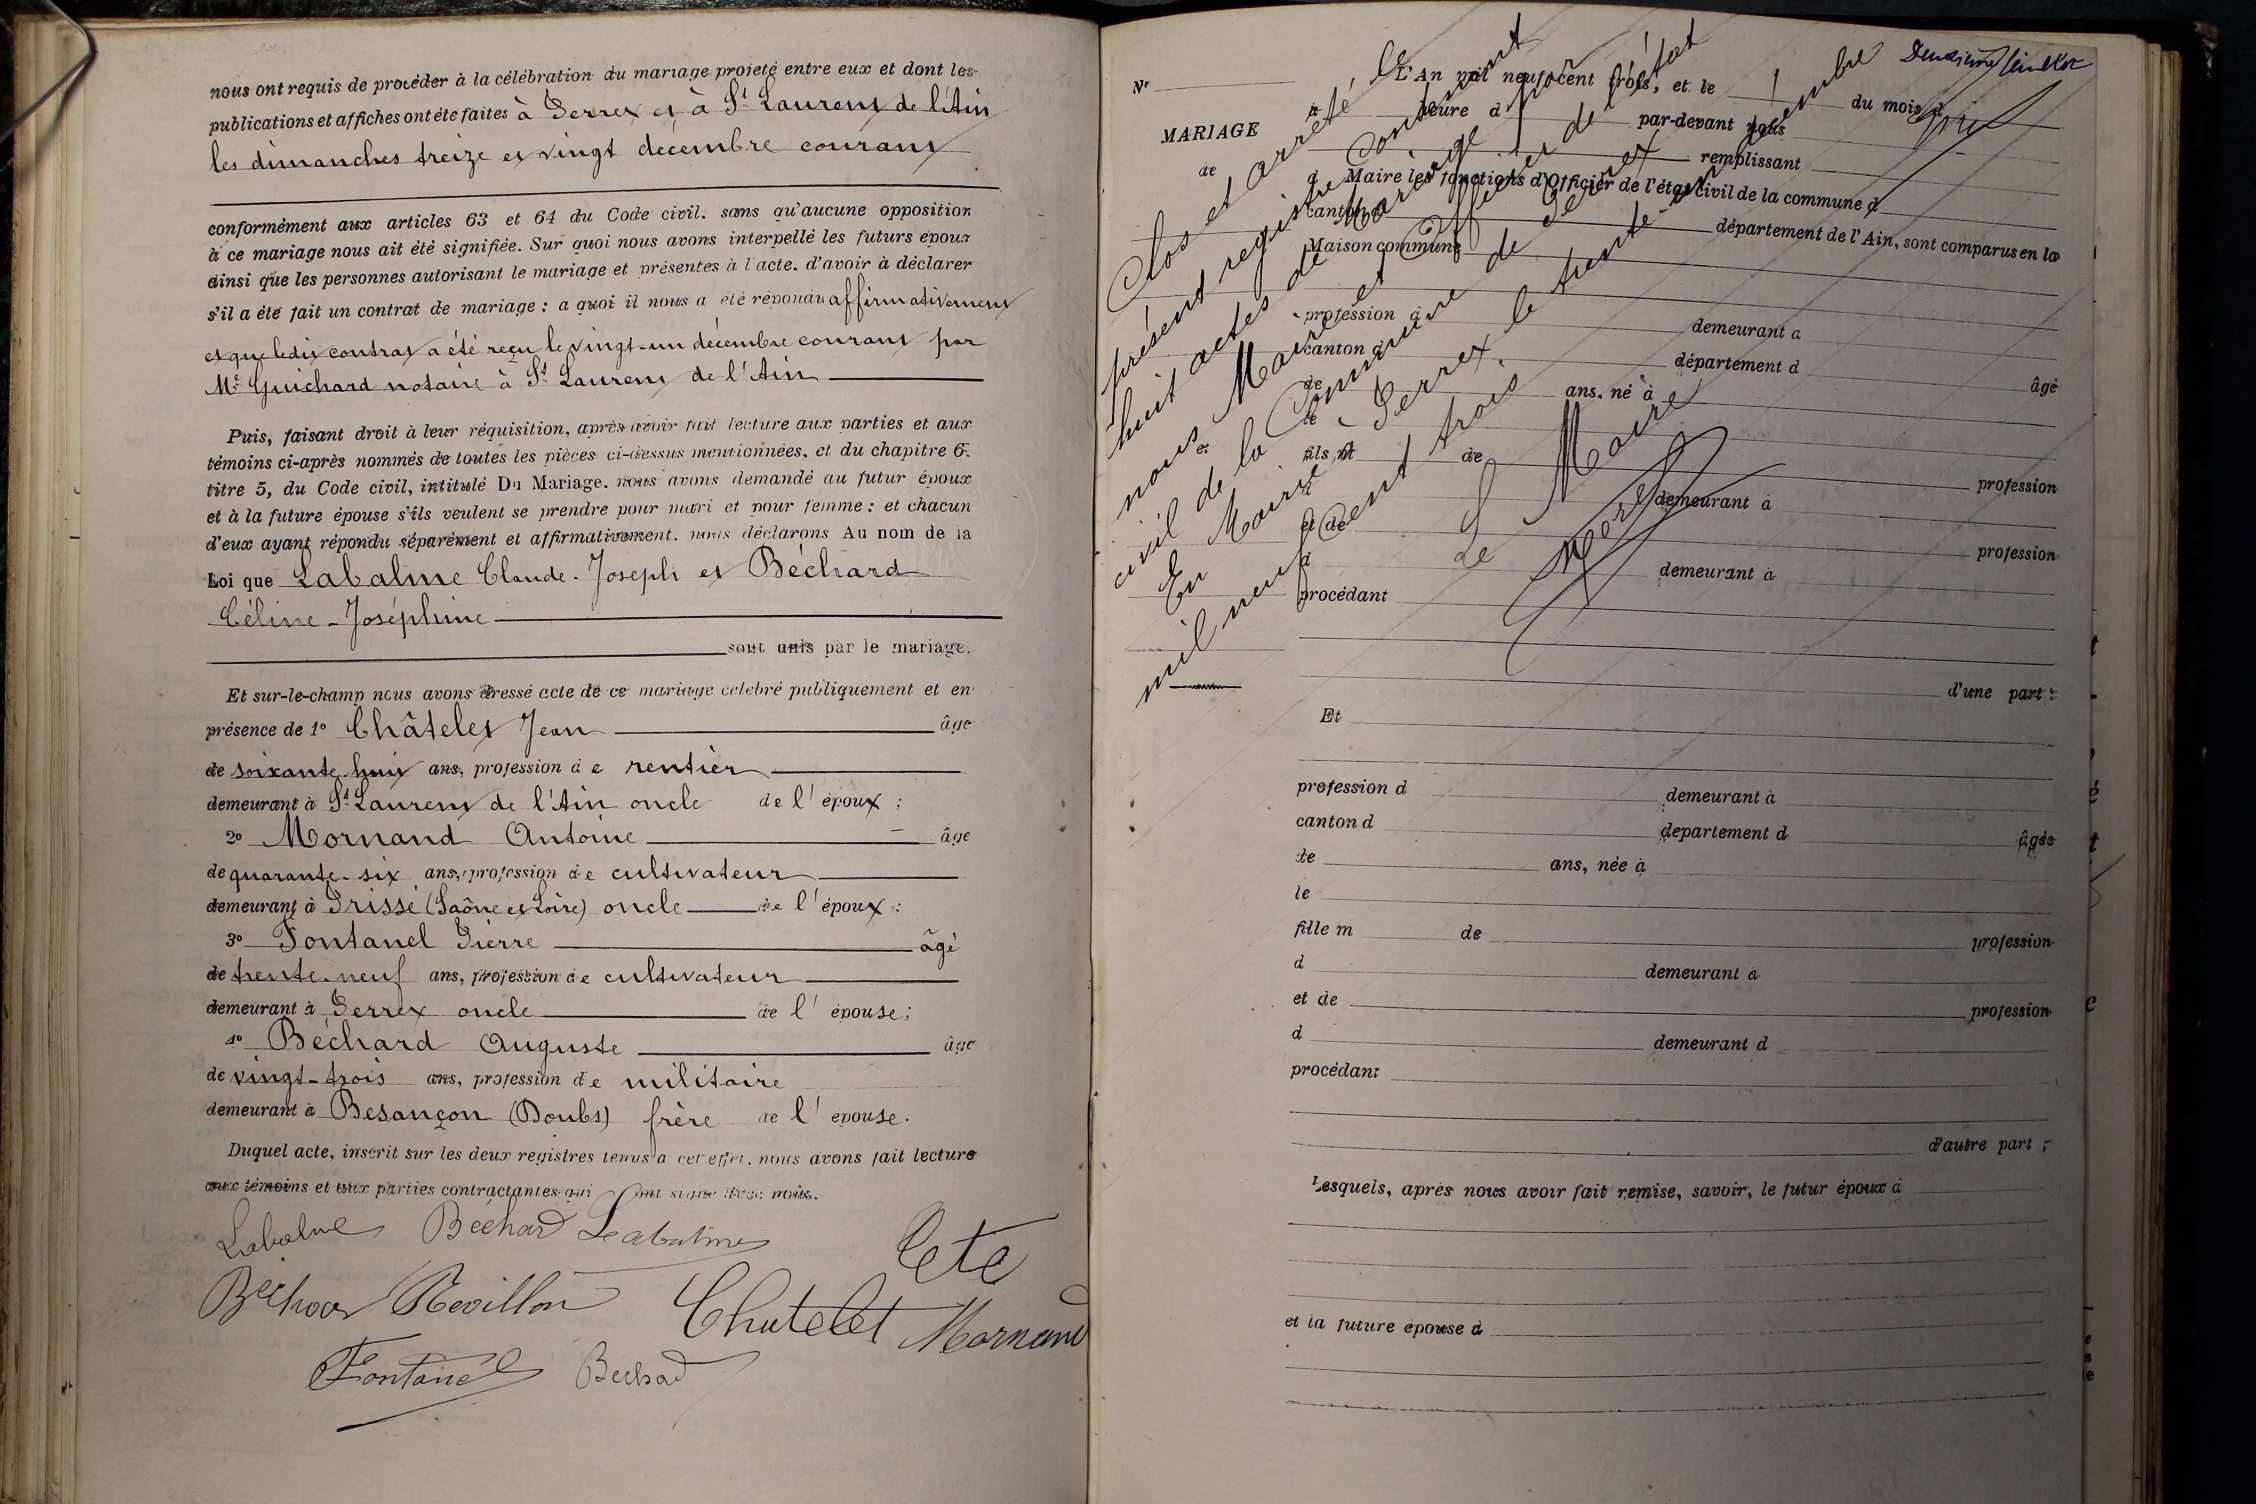 nous ont requis de procéder à la célébration du mariage projeté entre eux et dont les
publications et affiches ont été faites à Perrex et à St Laurent de l'Ain
les dimanches treize et vingt décembre courant
conformément aux articles 63 et 64 du Code civil. sans qu'aucune opposition
à ce mariage nous ait été signifiée. Sur quoi nous avons interpellé les futurs époux
ainsi que les personnes autorisant le mariage et présentes à l'acte. d'avoir à déclarer
s'il a été fait un contrat de mariage : a quoi il nous a été répondu affirmativement
et que ledit contrat a été reçu le vingt-un décembre courant par
Me Guichard notaire à St Laurent de l'Ain
Puis, faisant droit à leur réquisition, après avoir fait lecture aux parties et aux
témoins ci-après nommés de toutes les pièces ci-dessus mentionnées, et du chapitre 6.
titre 5, du Code civil, intitulé Du Mariage. nous avons demandé au futur époux
et à la future épouse s'ils veulent se prendre pour mari et pour femme : et chacun
d'eux ayant répondu séparément et affirmativement. nous déclarons Au nom de la
Loi que Labalme Claude-Joseph et Béchard
Céline-Joséphine
sont unis par le mariage.
Et sur-le-champ nous avons dressé acte de ce mariage célébré publiquement et en
présence de 1º Châtelet Jean âge
de soixante-huit ans, profession de rentier
demeurant à St Laurent de l'Ain oncle de l'époux :
2º Mornand Antoine âge
de quarante-six ans, profession de cultivateur
demeurant à Prissé (Saône et Loire) oncle de l'époux :
3º Fontanel Pierre âgé
de trente-neuf ans, profession de cultivateur
demeurant à Perrex oncle de l'épouse ;
4º Béchard Auguste âge
de vingt-trois ans, profession de militaire
demeurant à Besançon (Doubs) frère de l'épouse.
Duquel acte, inscrit sur les deux registres tenus a cet effet. nous avons fait lecture
aux témoins et aux parties contractantes qui ont signé avec nous.
Labalme Béchard Labalme
Revillon Chatelet Mornand
Fontanel Bechard
Deuxième
No
MARIAGE
de
et
L'An mil neuf cent trois, et le du mois d
à heure d par-devant nous
remplissant
d Maire les fonctions d'Officier de l'état civil de la commune d
canton d département de l'Ain, sont comparus en la
Maison commune
profession d demeurant a
canton d département d âgé
de ans. né à
le
fils de profession
d demeurant à
et de profession
d demeurant à
procédant
d'une part :
Et
profession d demeurant à
canton d departement d âgée
de ans, née à
le
fille m de profession
d demeurant a
et de profession
d demeurant d
procédant
d'autre part ;
Lesquels, après nous avoir fait remise, savoir, le futur époux d
et la future épouse d
Clos et arrêté, le
présent registre contenant
huit actes de Mariage par
nous Maire et Officier de l'état
civil de la Commune de Perrex
En Mairie à Perrex, le trente-un décembre
mil neuf cent trois
Le Maire